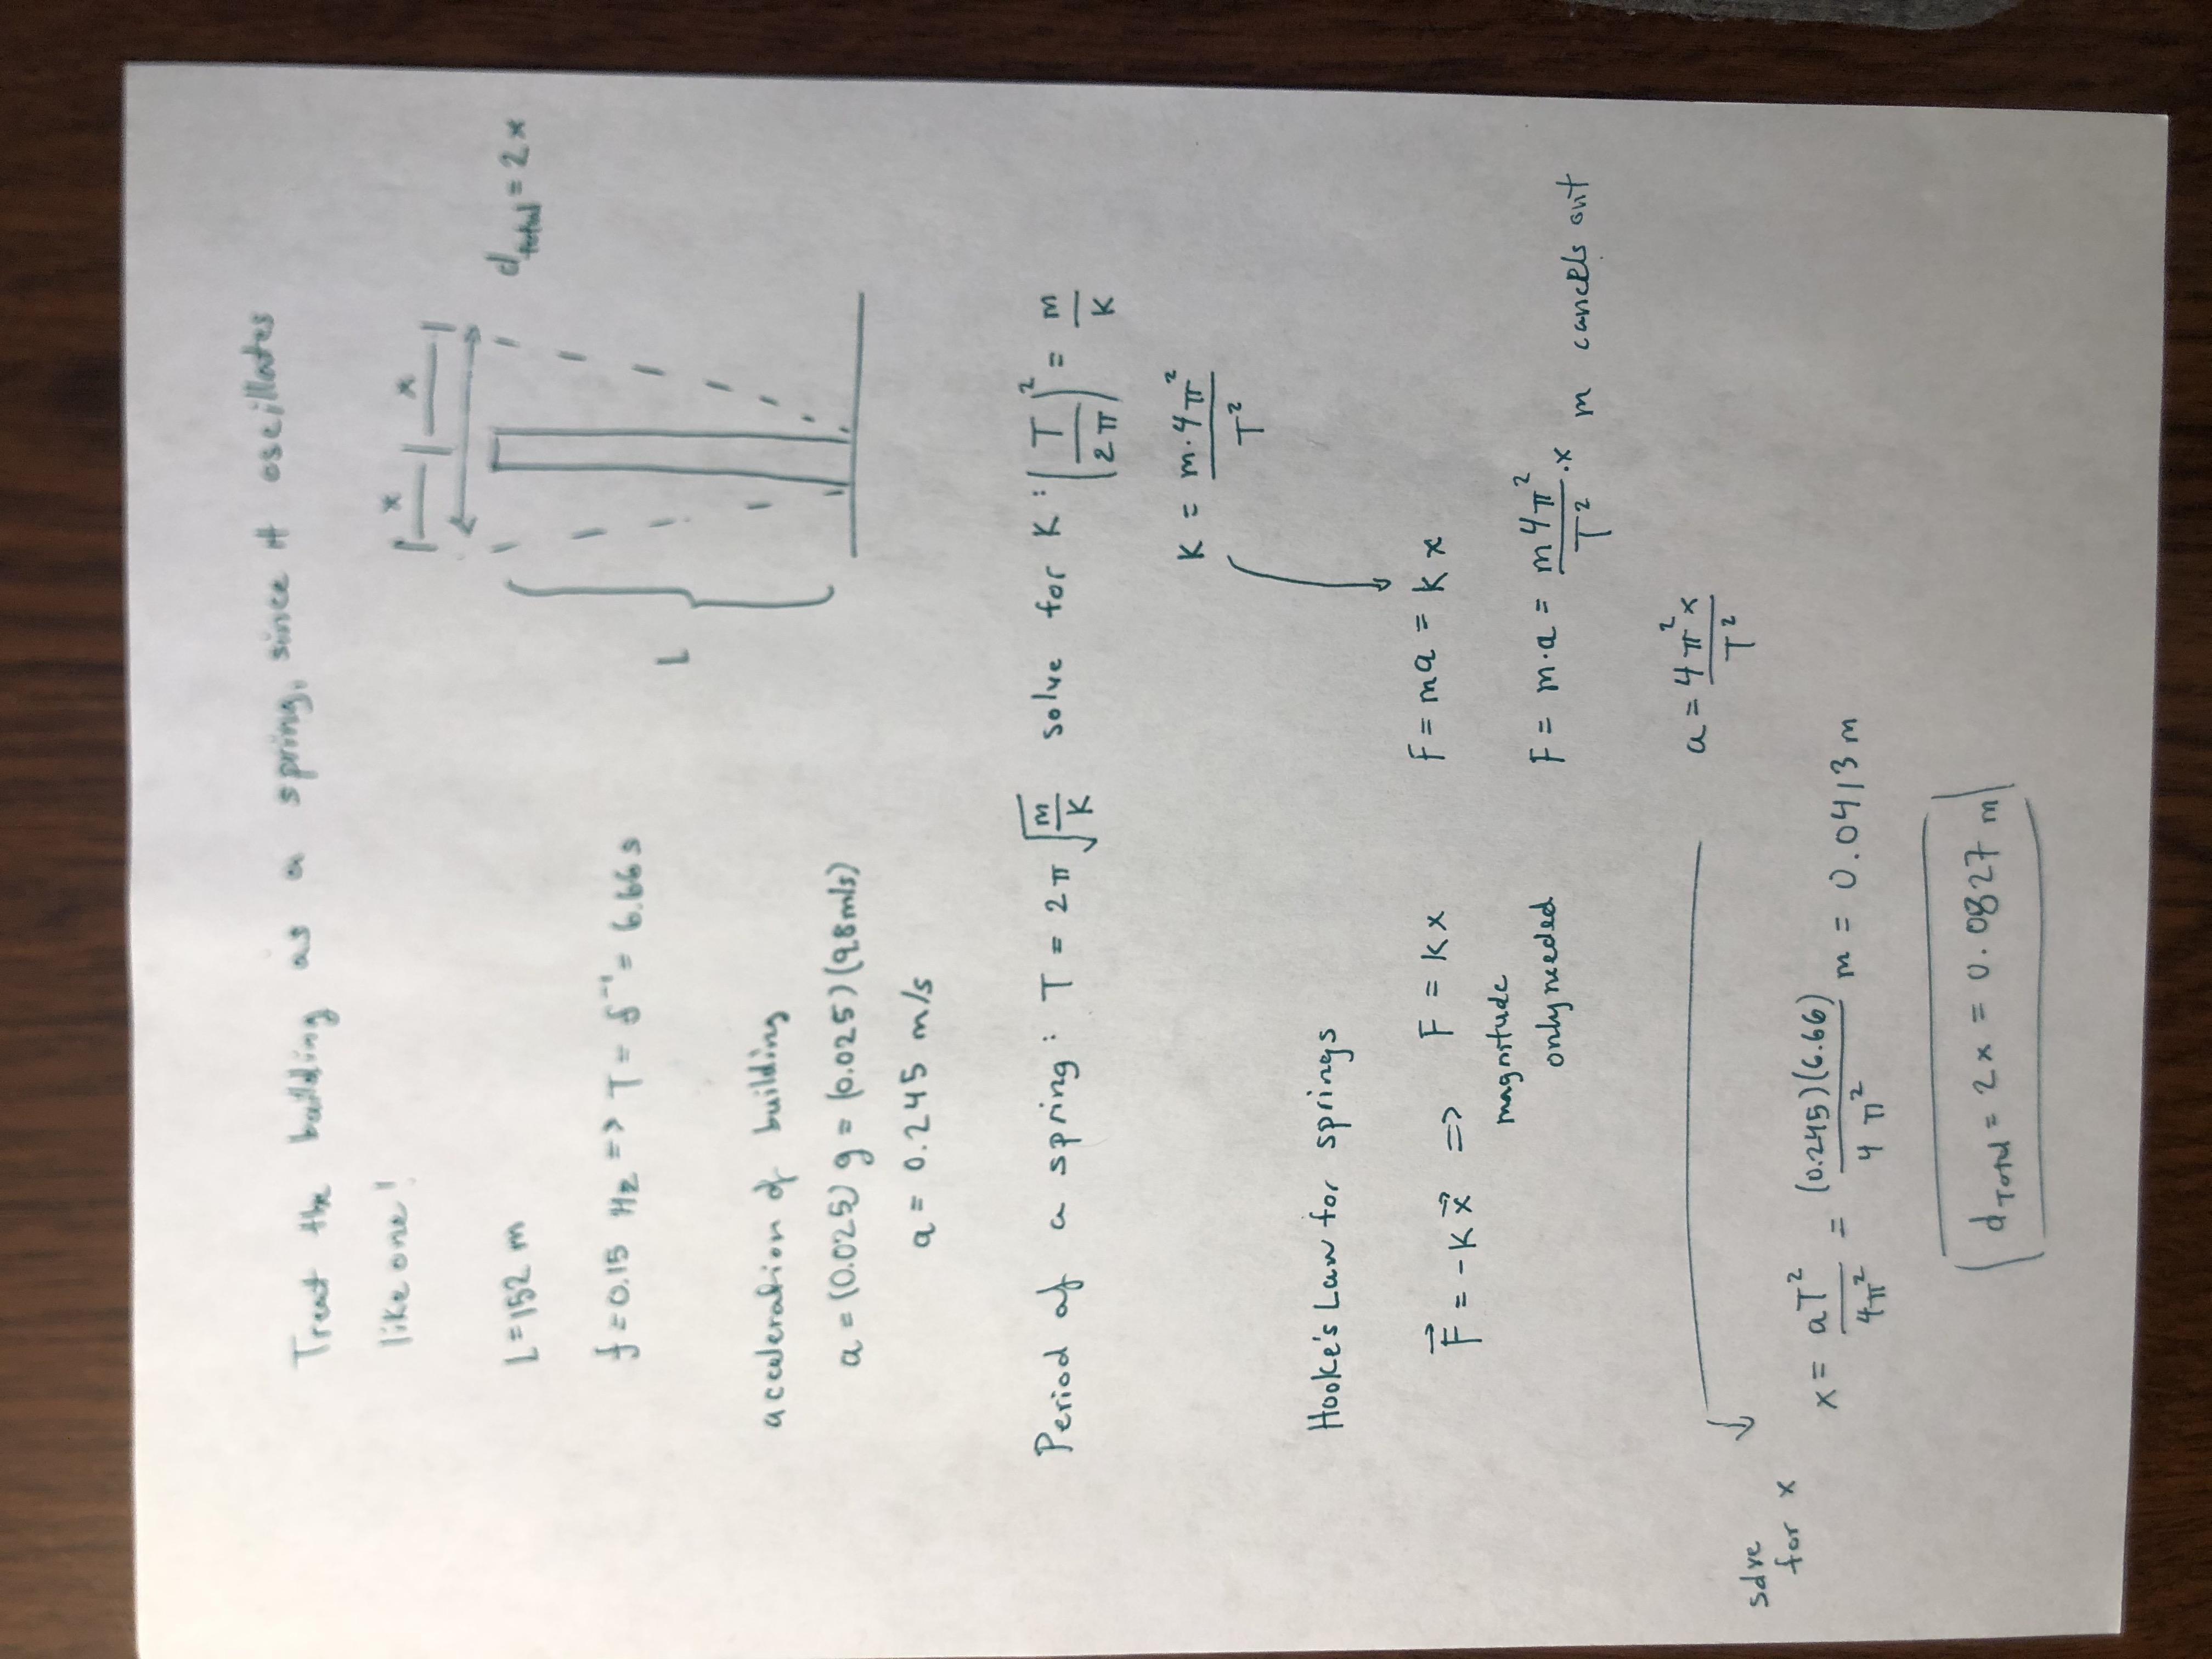 Treat the building as a spring, since it oscillates
like one!
x x
d_total = 2x
L = 152 m
L
f = 0.15 Hz => T = f⁻¹ = 6.66 s
acceleration of building
a = (0.025) g = (0.025)(9.8 m/s)
a = 0.245 m/s
Period of a spring: T = 2π √(m/K) solve for K: (T/2π)² = m/K
K = m·4π²/T²
Hooke's Law for springs
F⃗ = -K x⃗ => F = Kx F = ma = Kx
magnitude
only needed
F = m·a = m4π²/T² · x m cancels out
a = 4π²x/T²
solve
for x
x = aT²/4π² = (0.245)(6.66)/4π² m = 0.0413 m
d_Total = 2x = 0.0827 m